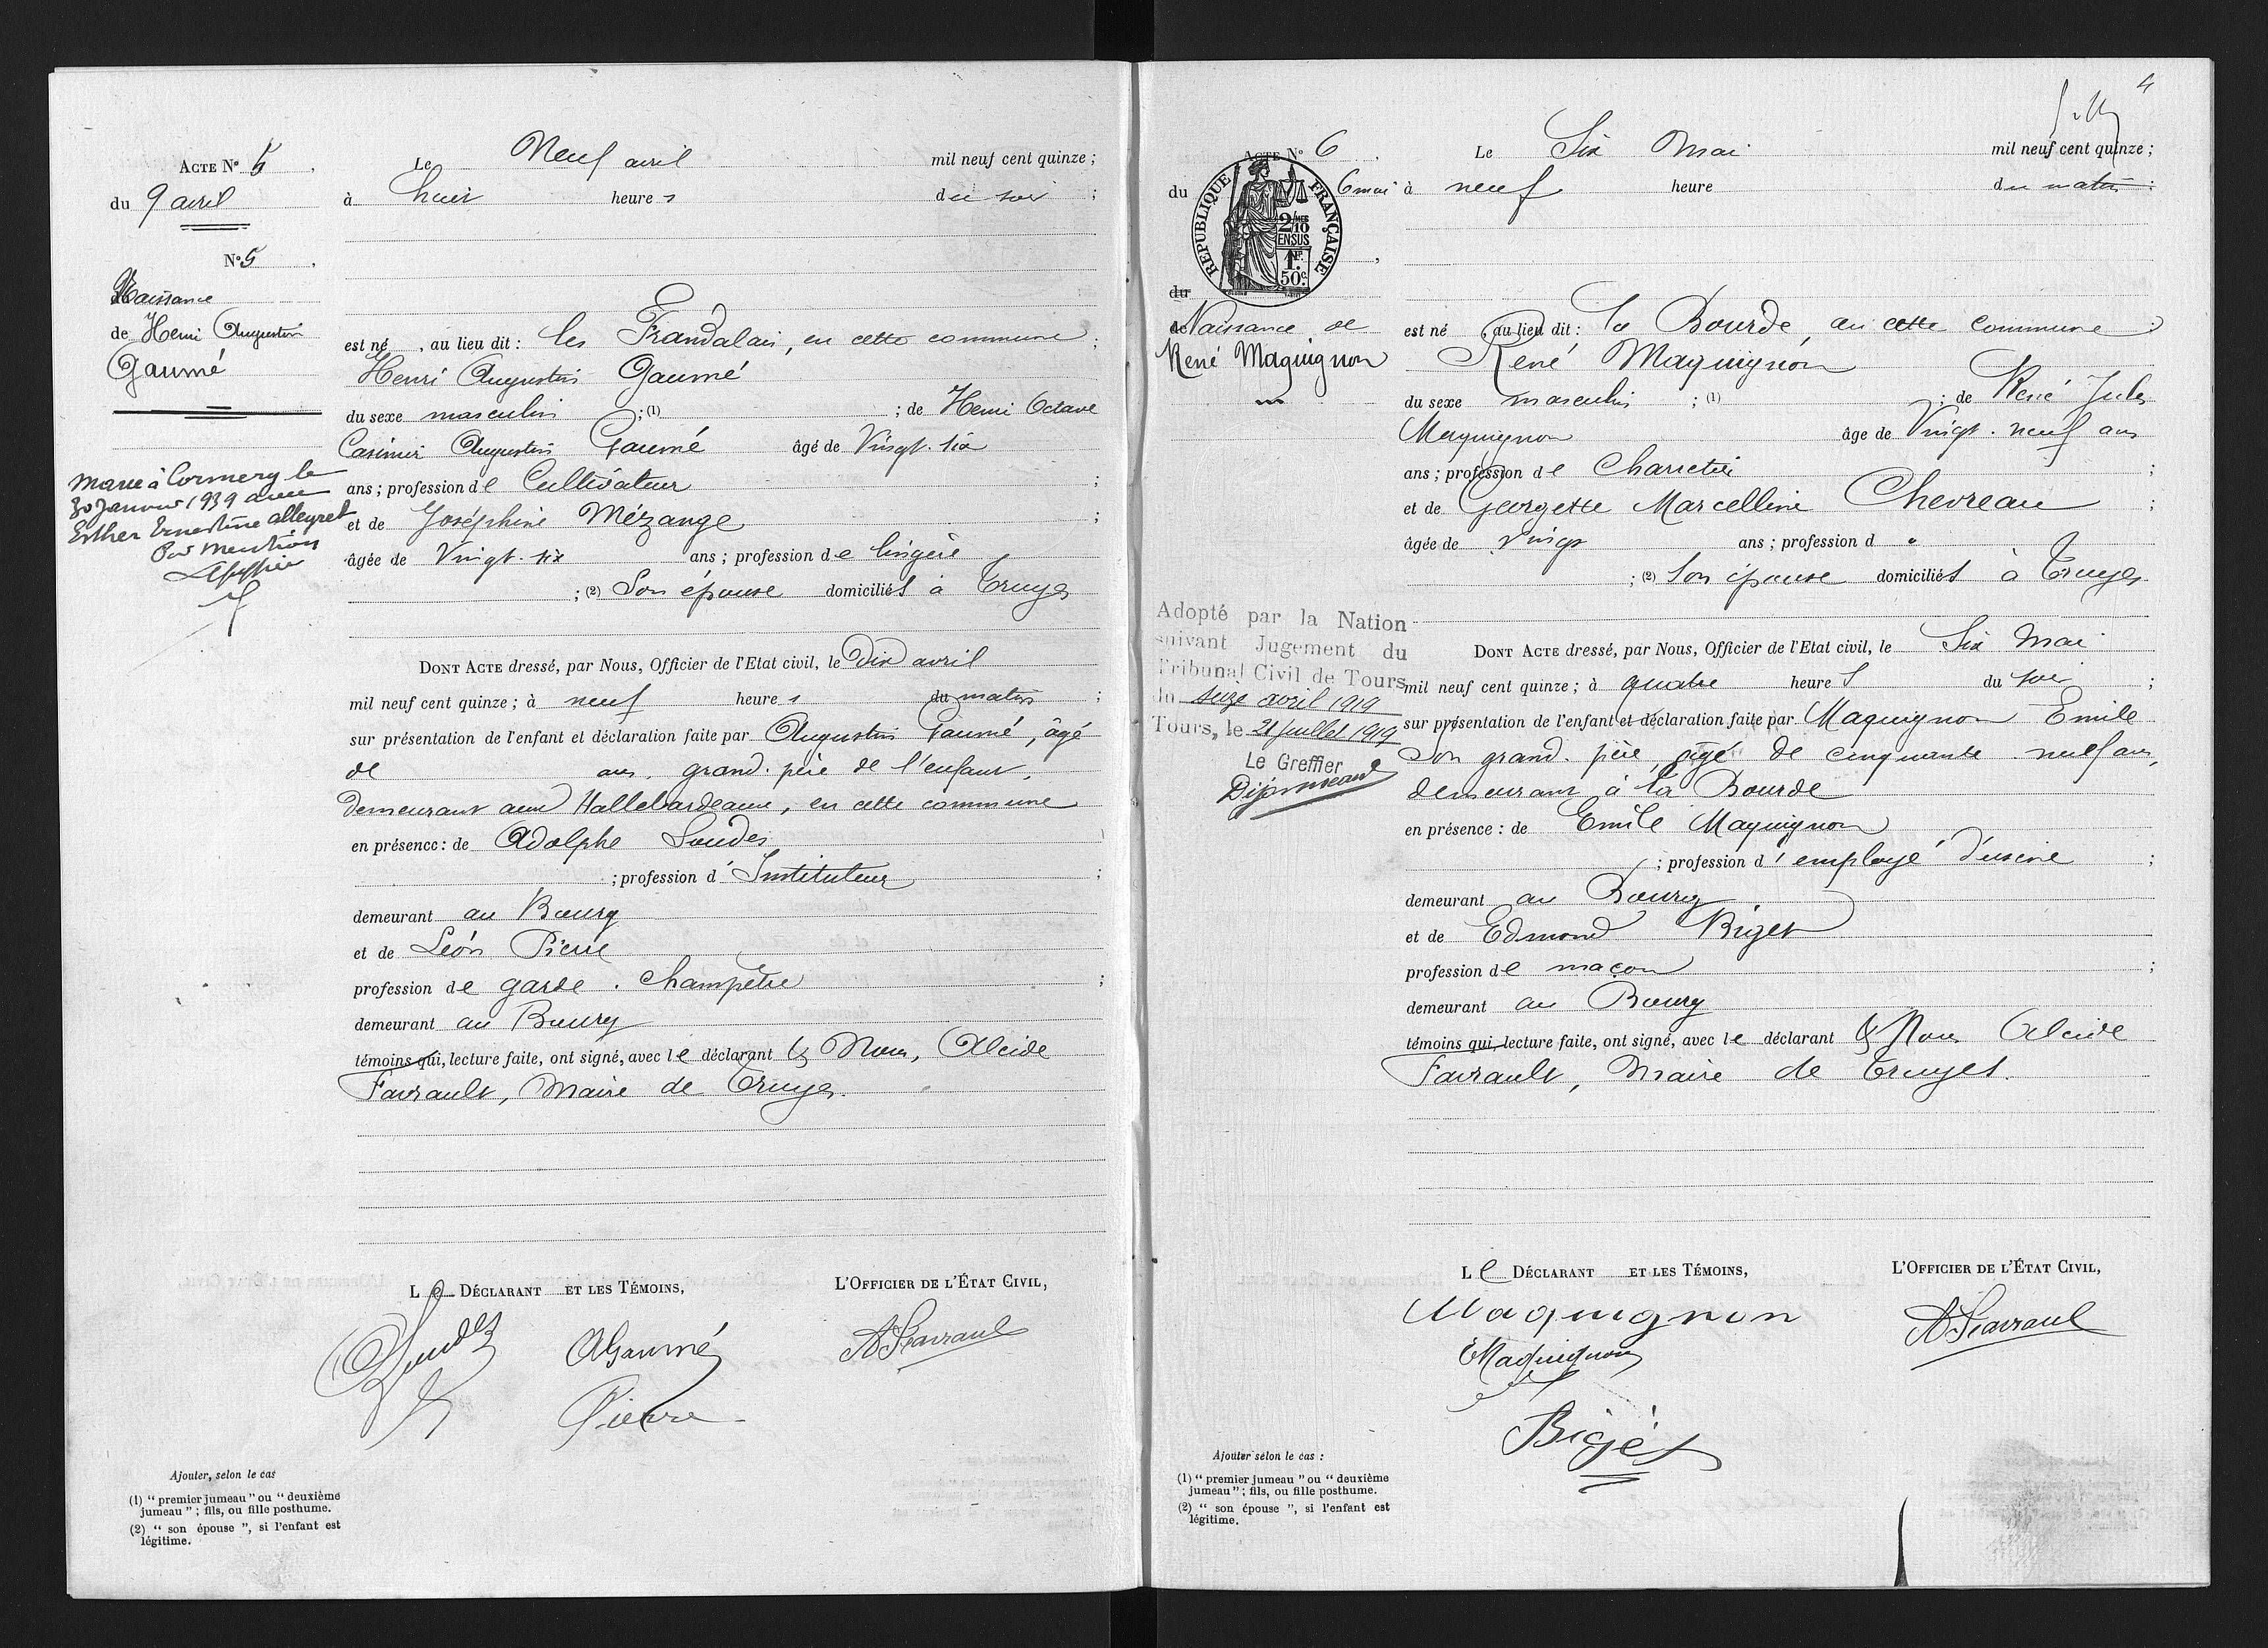 Acte N° 5.
du 9 avril
N° 5.
Naissance
de Henri Augustin
Gaumé
Marié à Cormery le
30 Janvier 1939 avec
Esther Ernestine Alleyret
Par mention
Le Neuf avril mil neuf cent quinze ;
à huit heures du soir ;
est né , au lieu dit : les Frandalais, en cette commune ;
Henri Augustin Gaumé
du sexe masculin ; (1) ; de Henri Octave
Casimir Augustin Gaumé âgé de Vingt-six
ans ; profession de Cultivateur ;
et de Joséphine Mézange ;
âgée de Vingt-six ans ; profession de lingère
; (2) Son épouse domiciliés à Truyes
Dont Acte dressé, par Nous, Officier de l'Etat civil, le Dix avril
mil neuf cent quinze ; à neuf heures du matin ;
sur présentation de l'enfant et déclaration faite par Augustin Gaumé, âgé
de ans, grand-père de l'enfant,
demeurant aux Hallebardeaux, en cette commune
en présence : de Adolphe Soudes
; profession d'Instituteur ;
demeurant au Bourg
et de Léon Pierre
profession de garde-champêtre ;
demeurant au Bourg
témoins qui, lecture faite, ont signé, avec le déclarant & Nous, Alcide
Favrault, Maire de Truyes.
Le Déclarant et les Témoins, L'Officier de l'État Civil,
Soudes AGaumé AFavrault
Pierre
Ajouter, selon le cas
(1) " premier jumeau " ou " deuxième
jumeau " ; fils, ou fille posthume.
(2) " son épouse ", si l'enfant est
légitime.
4
Acte N° 6.
du 6 mai
RÉPUBLIQUE FRANÇAISE
2/10 EN SUS
1F.
50c.
du
de Naissance de
René Maquignon
Adopté par la Nation
suivant Jugement du
Tribunal Civil de Tours
du seize avril 1919
Tours, le 21 juillet 1919
Le Greffier
Le Six Mai mil neuf cent quinze ;
à neuf heure du matin ;
est né au lieu dit : la Bourde, en cette commune ;
René Maquignon
du sexe masculin ; (1) ; de René Jules
Maquignon âge de Vingt-neuf ans
ans ; profession de Charretier ;
et de Georgette Marcelline Chevreau ;
âgée de Vingt ans ; profession d "
; (2) Son épouse domiciliés à Truyes
Dont Acte dressé, par Nous, Officier de l'Etat civil, le Six Mai
mil neuf cent quinze ; à quatre heures du soir ;
sur présentation de l'enfant et déclaration faite par Maquignon Emile
Son grand-père, âgé de cinquante-neuf ans,
demeurant à la Bourde
en présence : de Emile Maquignon
; profession d'employé d'usine ;
demeurant au Bourg
et de Edmond Biget
profession de maçon ;
demeurant au Bourg
témoins qui, lecture faite, ont signé, avec le déclarant & Nous Alcide
Favrault, Maire de Truyes.
Le Déclarant et les Témoins, L'Officier de l'État Civil,
Maquignon AFavrault
EMaquignon
Bigét
Ajouter selon le cas :
(1) " premier jumeau " ou " deuxième
jumeau " ; fils, ou fille posthume.
(2) " son épouse ", si l'enfant est
légitime.